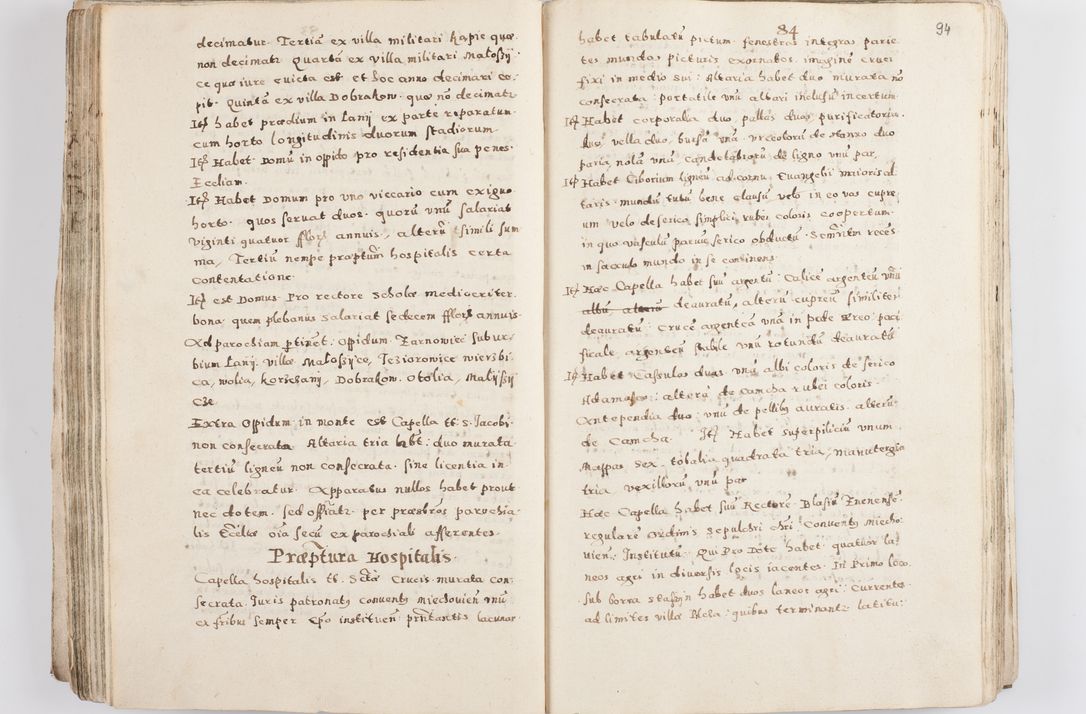 decimatur. Tertiã ex villa militari Kapie quæ
non decimat. Quartã ex villa militari Małoszÿ
ce quæ iure euicta est et hoc anno decimari cœ
pit. Quintã ex villa Dobrakow. quæ nõ decimatr
Itẽ habet prædium in Łanÿ ex parte reparatum
cum horto longitudinis duorum stadiorum
Itẽ Habet Domũ in opido pro residentia sua penes
Eccliam.
Itẽ Habet Domum pro uno viccario cum exiguo
horto. quos seruat duos. quorũ unũ salariat
viginti quatuor fflor annuis, alterũ simili sum
ma, Tertiũ nempe præptum hospitalis certa
contentatione.
Itẽ est Domus Pro rectore scholæ mediocriter
bona quem plebanus salariat sedecem fflor annuis
Ad parochiam ptinet: Opidum Żarnowiec subur,
bium Łanÿ. villæ Małoszÿce, Jeziorowice wierzbi
ca, wolia, korschanÿ, Dobrakow. Otolia, Malÿszÿ
cze.
Extra Oppidum in monte est Capella tt: s: Jacobi
non consecrata Altaria tria hbt: duo murata
tertiũ ligneũ non consecrata. sine licentia in
ea celebratur. Apparatus nullos habet prout
nec dotem. sed offiatr per præsbros parochia
lis Ecclie oĩa secũ ex parochiali afferentes
Præptura Hospitalis.
Capella hospitalis tt. Sctæ Crucis. murata con
secrata. Juris patronatꝰ Conventꝰ miechouien unũ
ex fribus semper Epo instituen prntantis lacunar
84
94
habet tabulatũ pictum. fenestras integras parie
tes mundos picturis exornatos. imaginẽ Cruci
fixi in medio sui: Altaria habet duo murata nõ
consecrata: portatile unũ altari inclusũ incertum.
Itẽ Habet corporalia duo, pallas duas purificatoria
duo, vella duo, bursã unã. vrceolorũ de stanno duo
paria, nolã unã candelabrorũ de ligno unũ par,
Itẽ Habet Ciborium ligneũ ad cornu Euangelii maioris al
taris. mundũ tutũ bene clausũ velo in eo vas cupre
um velo de serica simplici rubei coloris coopertum
in quo vasculũ paruũ serico obductũ. Semꝑ reces
in sacculo mundo in se continens.
Itẽ Hæc Capella habet suũ argentũ: Calicẽ argenteũ unũ
albũ, alterũ deauratũ, alterũ cupreũ similiter
deauratũ: Crucẽ argenteã unã in pede æreo: paci
ficale, argenteũ stabile unũ rotundũ deauratũ
Itẽ Habet Casulas duas. unã albi coloris de serico
Adamasco: alterã de camcha rubei coloris.
Antependia duo: unũ de pellibꝰ auratis. alterũ
de Camcha. Itẽ Habet superpiliciũ unum.
Mappas sex. tobalia quadrata tria, manutergia
tria vexillorũ unũ par
Hæc Capella habet suũ Rectorẽ. Blasiũ Znenensẽ.
regularẽ ordinis sepulchri Chri Conventꝰ miecho
uien: Institutũ. Qui Pro Dote habet. quatuor la
neos agri in diuersis locis iacentes. In Primo loco
sub borra staszÿn habet duos laneos agri: Currentes
ad limites villæ Biela: quibus terminantr latitu: